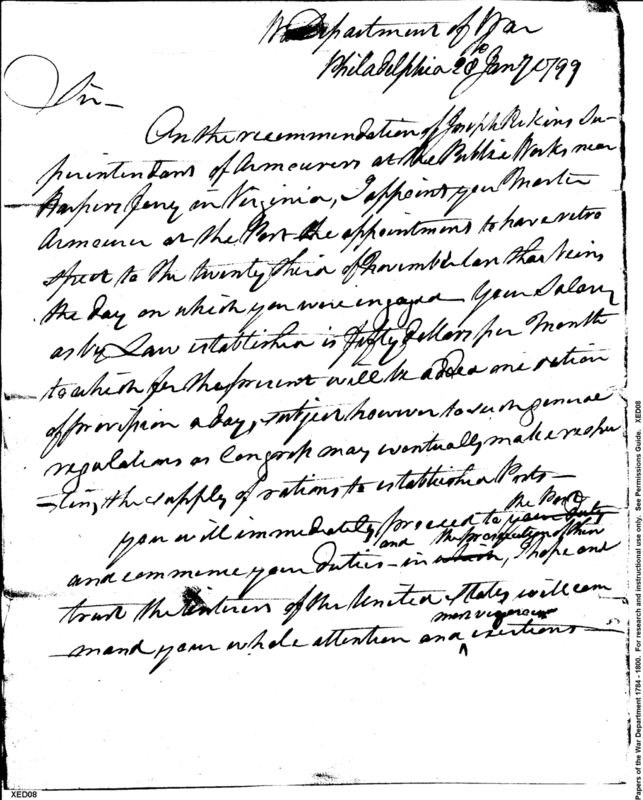 Department of War
Philadelphia 28th Jany 1799
Sir—
On the recommendation of Joseph Perkins Su-
perintendant of Armourers at the Public Works near
Harpers Ferry in Virginia, I appoint you Master
Armourer at the Post the appointment to have retro
spect to the twenty third of November last that being
the day on which you were engaged Your Salary
as by Law established is fifty dollars per Month
to which for the present will be added one ration
of provision a day, subject however to such general
regulations as Congress may eventually make respec
-ting the supply of rations to established Posts—
the Post
you will immediately proceed to your duty
and the prosecution of them
and commence your duties— in which, I hope and
trust the interest of the United States will com
most vigorous
mand your whole attention and exertions—
Papers of the War Department 1784 - 1800. For research and instructional use only. See Permissions Guide. XED08
XED08